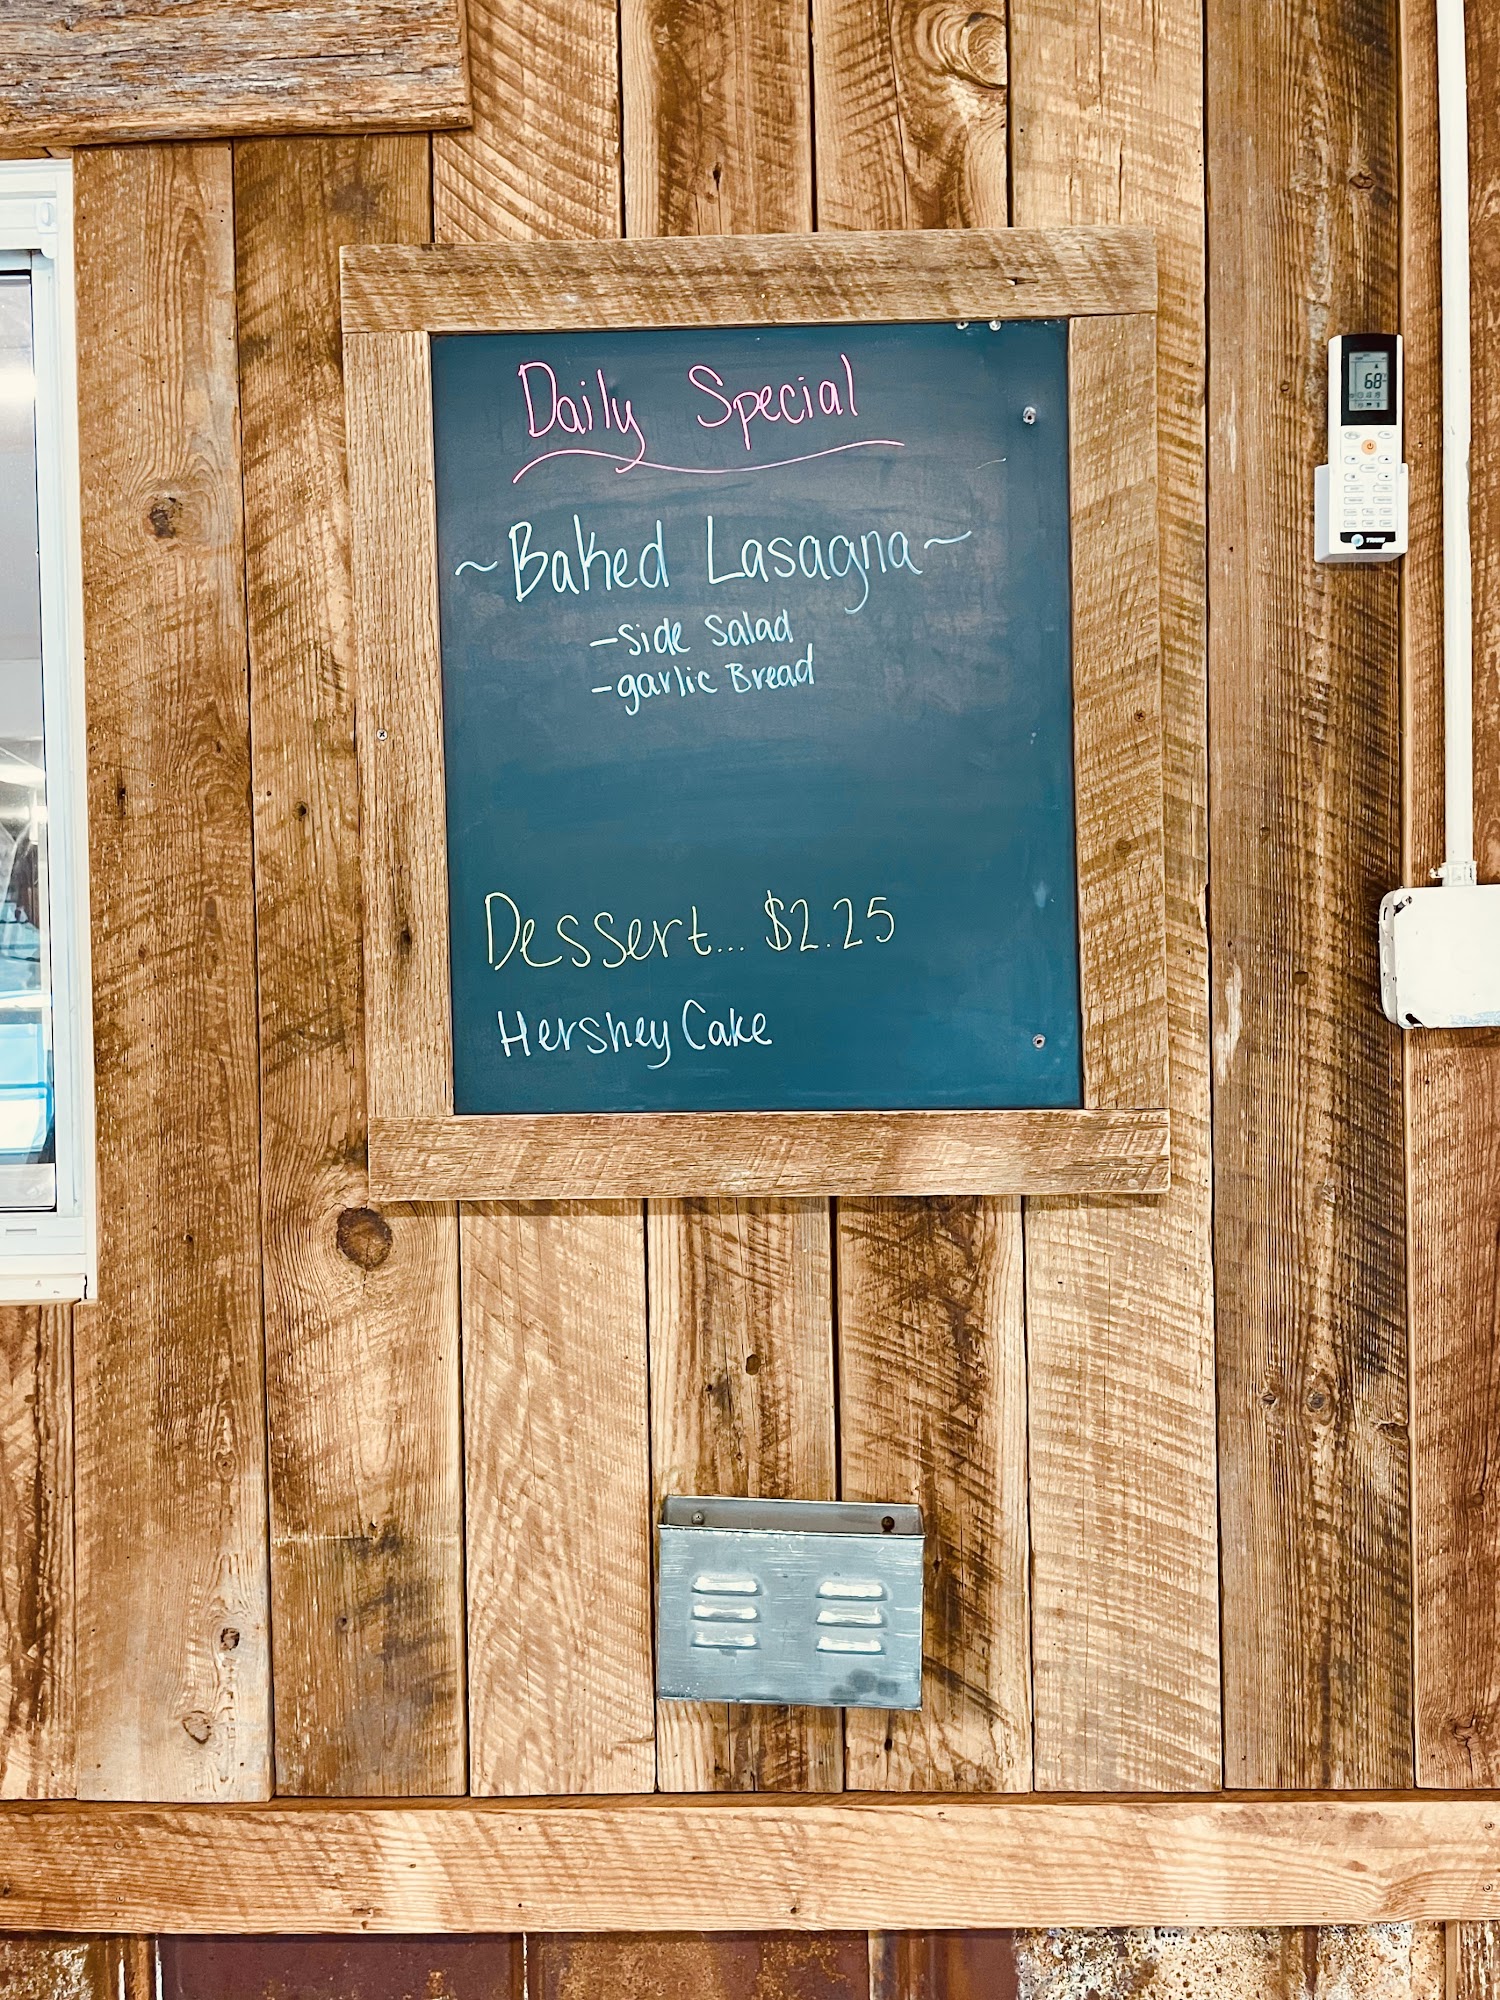 Daily Special
~Baked Lasagna~
-Side Salad
-garlic Bread
Dessert... $2.25
Hershey Cake
68°